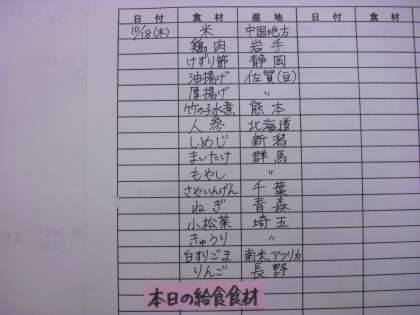 日付 食材 産地 日付 食材
10/18(木) 米 中国地方
鶏肉 岩手
けずり節 静岡
油揚げ 佐賀(豆)
厚揚げ 〃
竹の子水煮 熊本
人参 北海道
しめじ 新潟
まいたけ 群馬
もやし 〃
さやいんげん 千葉
ねぎ 青森
小松菜 埼玉
きゅうり 〃
白すりごま 南米、アフリカ
りんご 長野
本日の給食食材